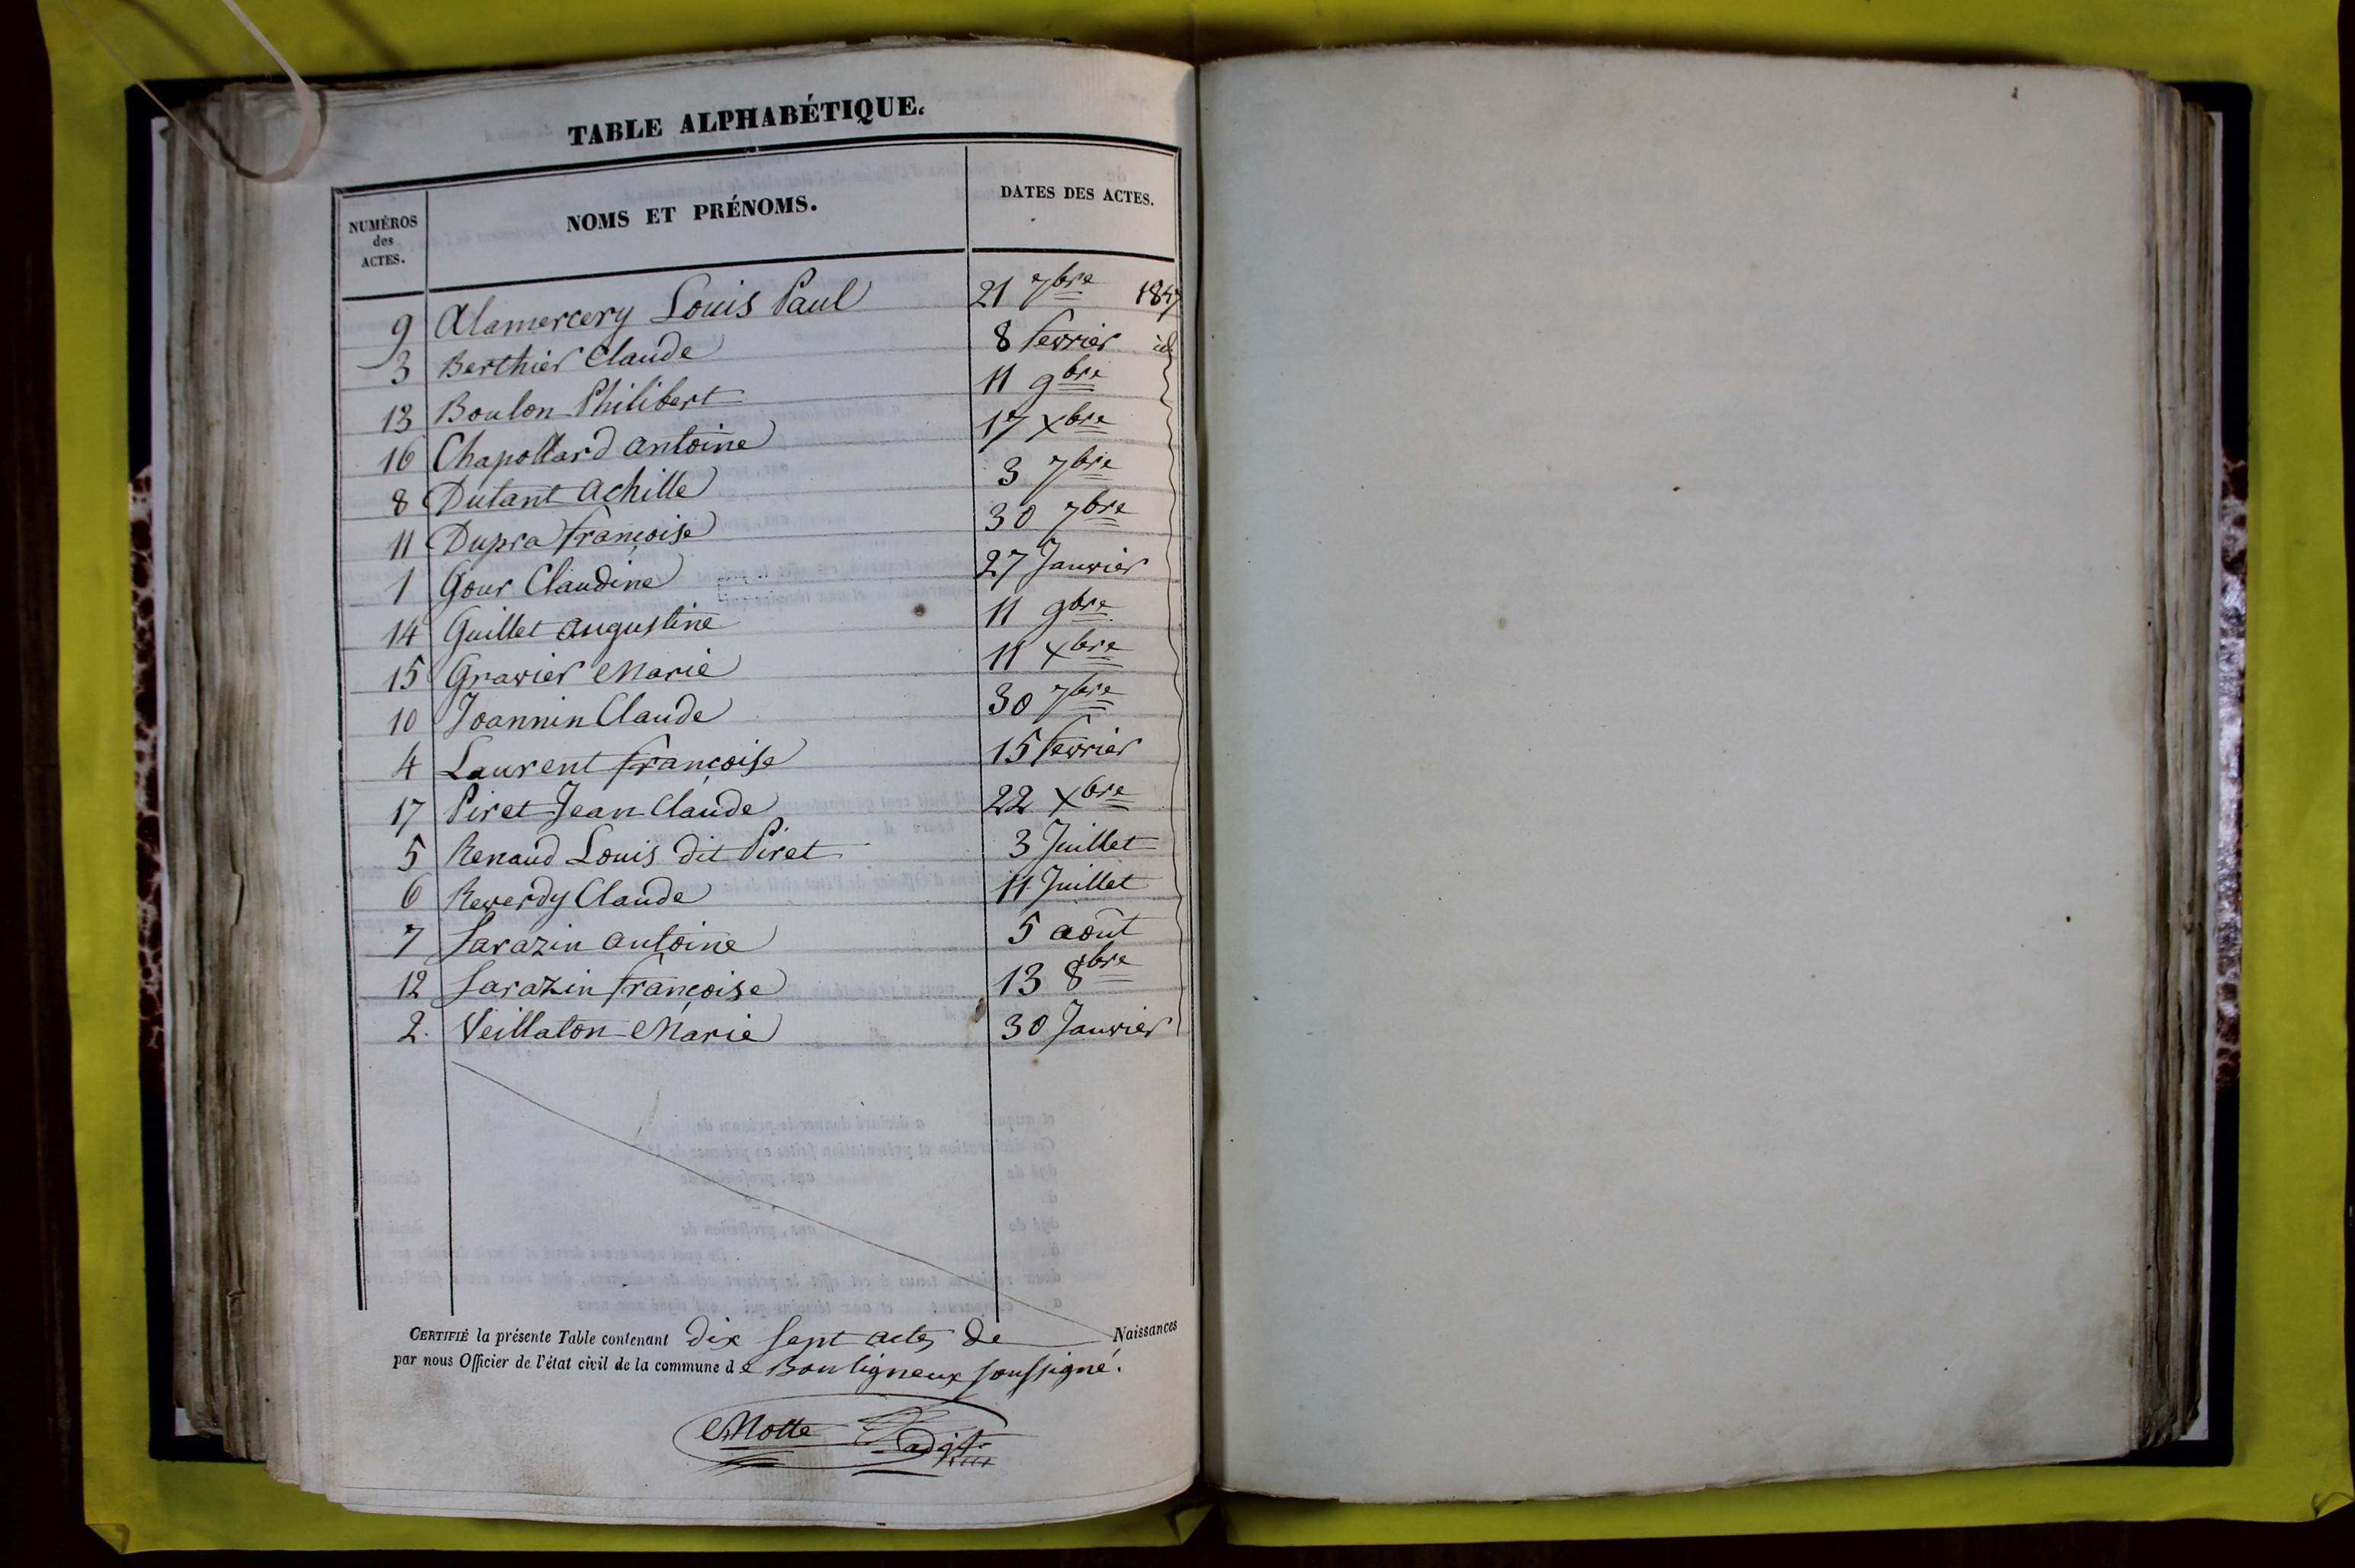 TABLE ALPHABÉTIQUE.
NUMÉROS des ACTES. NOMS ET PRÉNOMS. DATES DES ACTES.
9 Alamercery Louis Paul 21 7bre 1847
3 Berthier Claude 8 fevrier id
13 Boulon Philibert 11 9bre
16 Chapollard antoine 17 Xbre
8 Dutant achille 3 7bre
11 Dupra françoise 30 7bre
1 Gour Claudine 27 Janvier
14 Guillet augustine 11 9bre
15 Gravier Marie 11 Xbre
10 Joannin Claude 30 7bre
4 Laurent françoise 15 fevrier
17 Piret Jean Claude 22 Xbre
5 Renaud Louis dit Piret 3 Juillet
6 Reverdy Claude 11 Juillet
7 Sarazin antoine 5 août
12 Sarazin françoise 13 8bre
2. Veillaton Marie 30 Janvier
CERTIFIÉ la présente Table contenant dix sept actes de Naissances
par nous Officier de l'état civil de la commune de Bouligneux soussigné.
Motte adjt